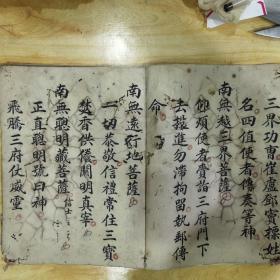 三界功曹崔盧鄧竇操姓
名四值使者傳奏等神
南無越三界菩薩
仰煩使者賫詣三府門下
去搖進勿滯拘留執郵傳
命
南無遠行地菩薩
一切恭敬信禮常住三寶
焚香供養開明真宰
南無聰明藏菩薩
正直聰明號曰神
飛騰三府仗威靈